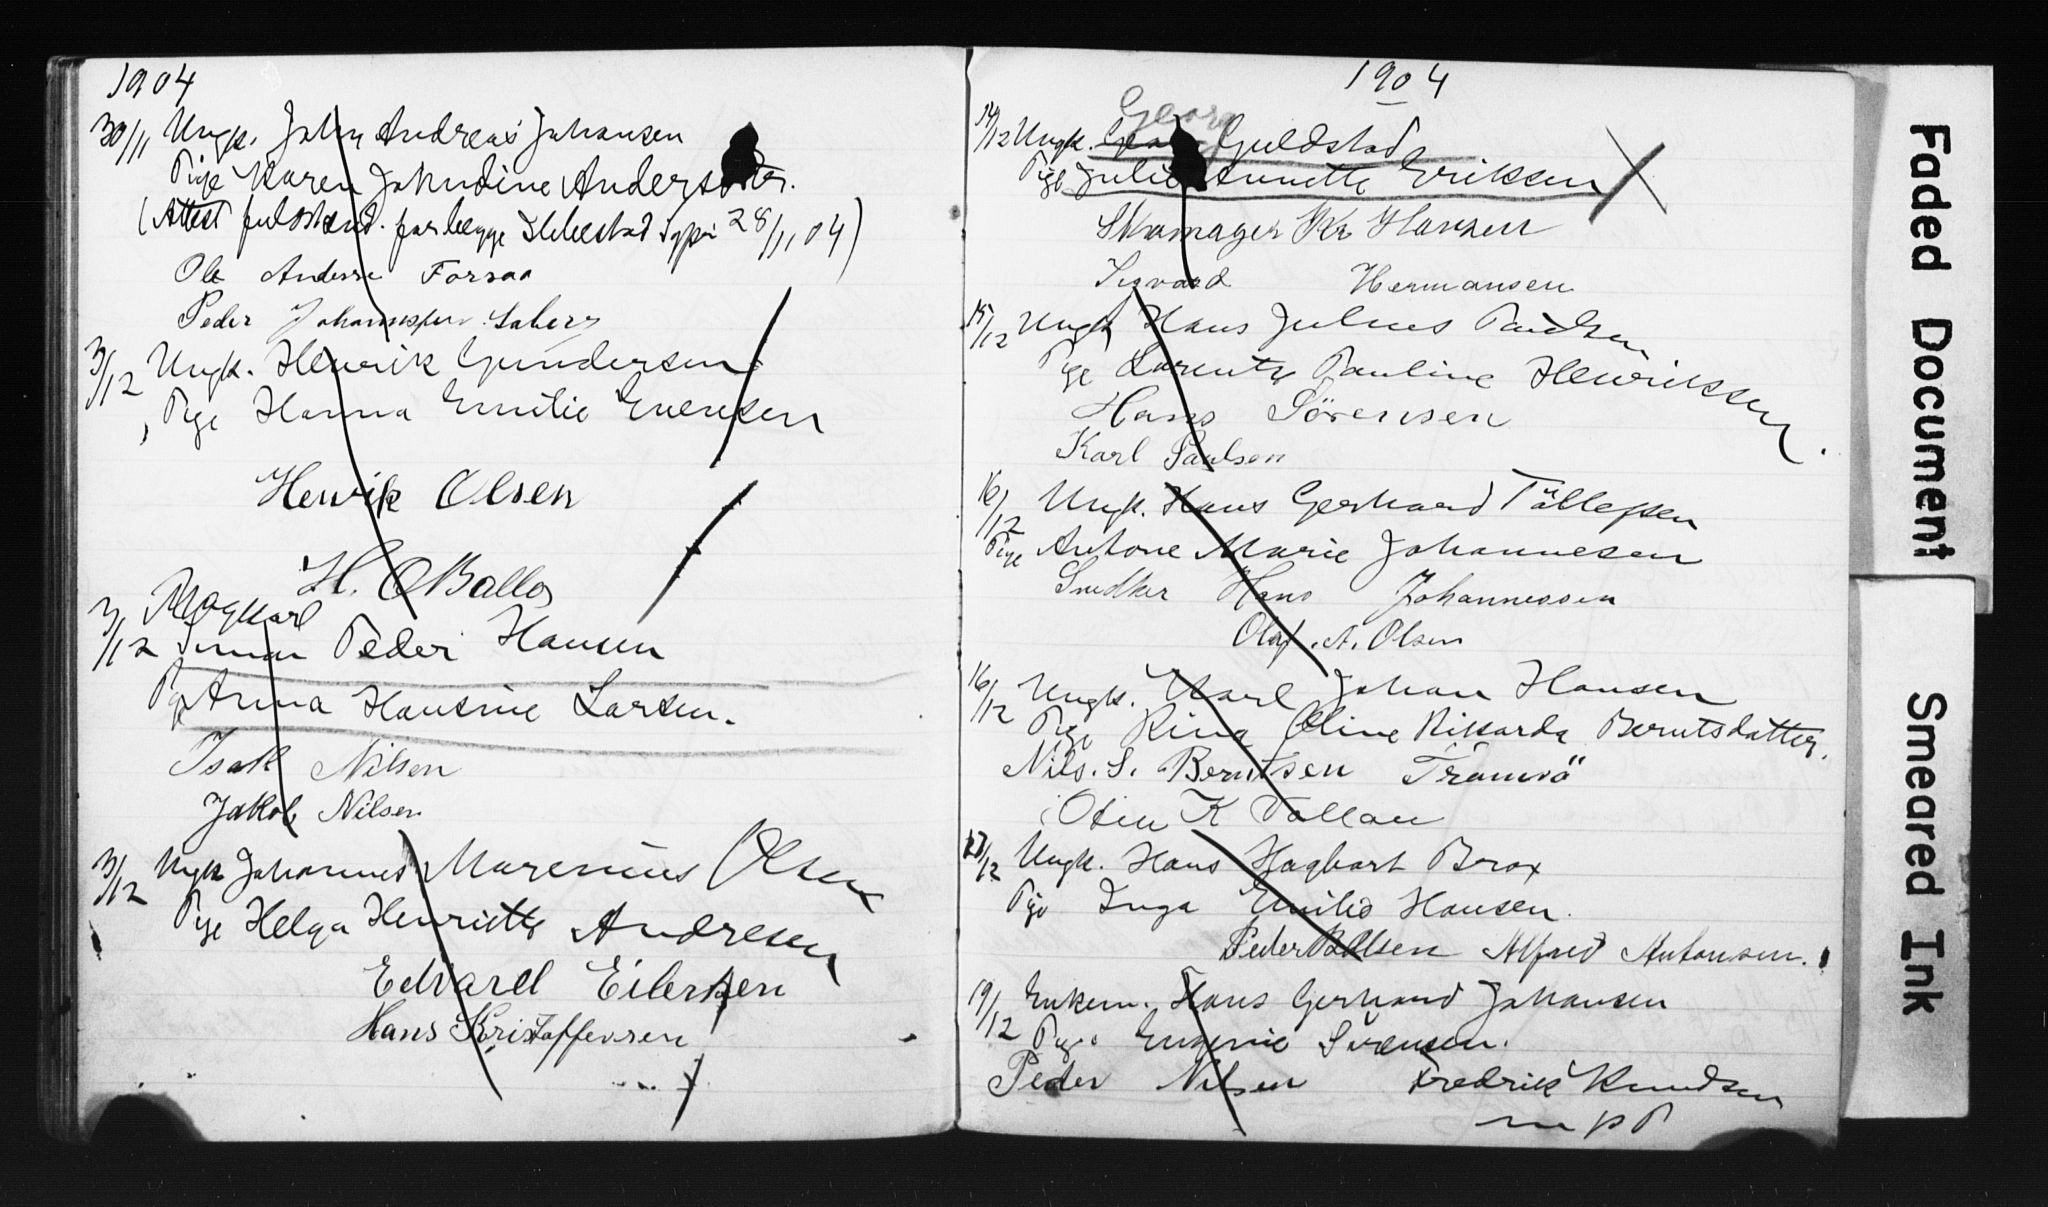 1904
30/11 Ungk. John Andreas Johansen
Pige Karen Jakudine
(Attest for begge 28/11 04)
Ole Forsaa
Peder
3/12 Ungk. Henrik Gundersen
Pige Hanna Emilie Evensen
Henrik Olsen
H. OBalto
3/12 Ungkarl
Peder Hansen
Pige Anna Hansine Larsen.
Isak Nilsen
Jakob Nilsen
3/12 Ungk Johannes Marenius Olsen
Pige Helga Henriette Andresen
Edvard Eilersen
Hans Kristoffersen
1904
Georg
14/12 Ungk. Guldstad
Pige Julie Annette Eriksen
Skomager Kr Hansen
Sigvard Hermansen
15/12 Ungk Hans Julius Paulsen
Pige Lorentze Pauline Henrikssen.
Hans Sörensen
Karl Paulsen
16/12 Ungk. Hans Gerhard Tollefsen
Pige Antone Marie Johannesen
Snedker Hans Johannessen
Olaf A. Olsen
16/12 Ungk. Karl Johan Hansen
Pige Rina Oline Rikkarda Berntsdatter.
Nils. S. Berntsen Tromsö
K Vollan
/12 Ungk. Hans Hagbart Brox
Pige Inga Emilie Hansen.
Peder Alfred Antonsen.
19/12 Enkem. Hans Gerhard Johansen
Pige Eugenie Sörensen.
Peder Nilsen Fredrik Knudsen
m p P
Faded Document
Smeared Ink